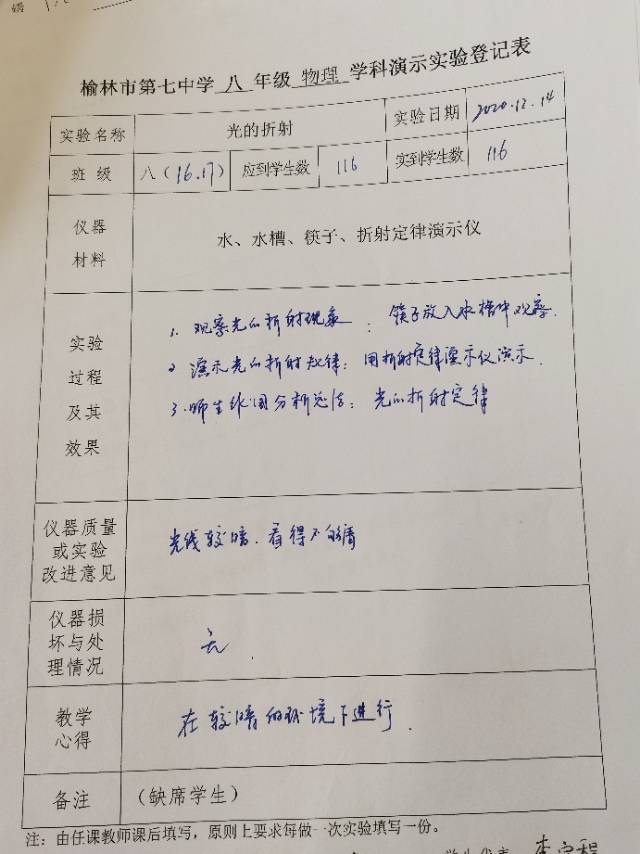 榆林市第七中学 八 年级 物理 学科演示实验登记表
实验名称 光的折射 实验日期 2020.12.14
班 级 八（16.17） 应到学生数 116 实到学生数 116
仪器
材料
水、水槽、筷子、折射定律演示仪
实验
过程
及其
效果
1. 观察光的折射现象：筷子放入水槽中观察.
2 演示光的折射规律：用折射定律演示仪演示.
3. 师生 分析总结：光的折射定律
仪器质量
或实验
改进意见
光线较暗.看得不够清
仪器损
坏与处
理情况
无.
教学
心得
在较暗的环境下进行.
备注 （缺席学生）
注：由任课教师课后填写，原则上要求每做一次实验填写一份。